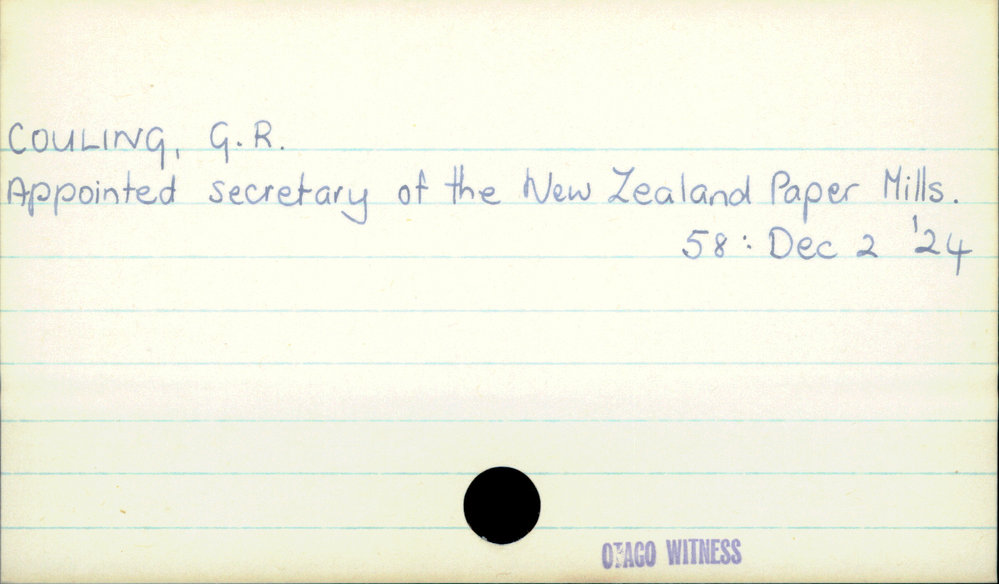 COULING, G.R.
Appointed secretary of the New Zealand Paper Mills.
58: Dec 2 '24
OTAGO WITNESS